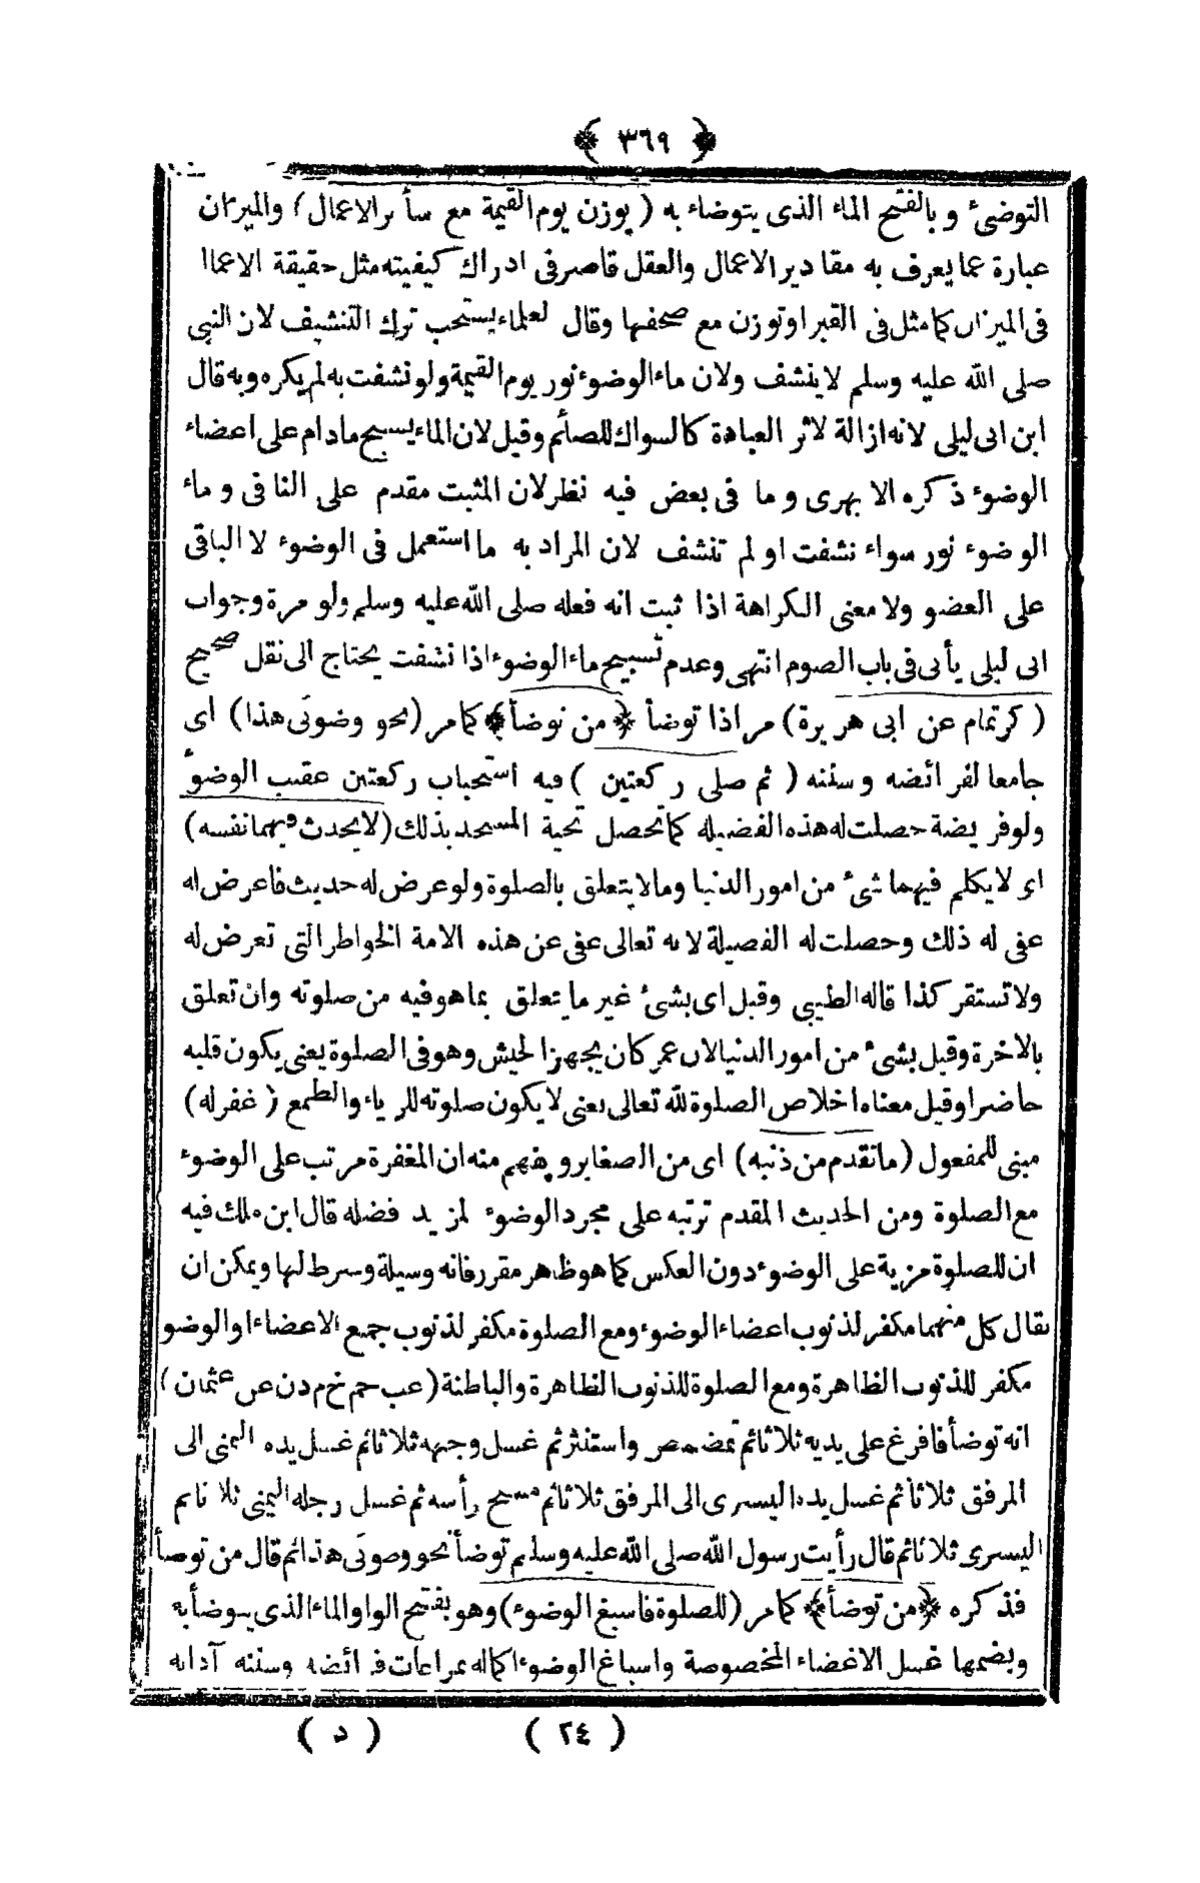 ﴿ ٣٦٩ ﴾
التوضئ و بالفتح الماء الذى يتوضاء به ( يوزن يوم القيمة مع سأر الاعمال ) والميزان
عبارة عما يعرف به مقادير الاعمال والعقل قاصر فى ادراك كيفيته مثل حقيقة الاعما
فى الميزان كما مثل فى القبر او توزن مع صحفها وقال لعلماء يستحب ترك التنشيف لان النبى
صلى الله عليه وسلم لا ينشف ولان ماء الوضوء نور يوم القيمة ولو نشفت به لم يكره وبه قال
ابن ابى ليلى لانه ازالة لاثر العبادة كالسواك للصأم وقيل لان الماء يسبح مادام على اعضاء
الوضوء ذكره الابهرى و ما فى بعض فيه نظر لان المثبت مقدم على النافى و ماء
الوضوء نور سواء نشفت او لم تنشف لان المراد به ما استعمل فى الوضوء لا الباقى
على العضو ولا معنى الكراهة اذا ثبت انه فعله صلى الله عليه وسلم ولو مرة وجواب
ابى ليلى يأتى فى باب الصوم انتهى وعدم تسبيح ماء الوضوء اذا نشفت يحتاج الى نقل صحيح
( كر تمام عن ابى هريرة ) مر اذا توضأ ﴿ من توضأ ﴾ كما مر ( نحو وضوئى هذا ) اى
جامعا لفرائضه وسننه ( ثم صلى ركعتين ) فيه استحباب ركعتين عقيب الوضوء
ولو فريضة حصلت له هذه الفضيلة كما تحصل تحية المسجد بذلك ( لا يحدث فيهما نفسه )
اى لا يكلم فيهما شئ من امور الدنيا وما لا يتعلق بالصلوة ولو عرض له حديث فاعرض له
عفى له ذلك وحصلت له الفضيلة لانه تعالى عفى عن هذه الامة الخواطر التى تعرض له
ولا تستقر كذا قاله الطيبى وقيل اى بشئ غير ما يتعلق بما هو فيه من صلوته وان تعلق
بالاخرة وقيل بشئ من امور الدنيا لان عمر كان يجهز الجيش وهو فى الصلوة يعنى يكون قلبه
حاضرا وقيل معناه اخلاص الصلوة لله تعالى يعنى لا يكون صلوته للرياء والطمع ( غفر له )
مبنى للمفعول ( ما تقدم من ذنبه ) اى من الصغاير و يفهم منه ان المغفرة مرتب على الوضوء
مع الصلوة ومن الحديث المقدم ترتبه على مجرد الوضوء لمزيد فضله قال ابن ملك فيه
ان للصلوة مزية على الوضوء دون العكس كما هو ظاهر مقرر فانه وسيلة وشرط لها ويمكن ان
يقال كل منهما مكفر لذنوب اعضاء الوضوء ومع الصلوة مكفر لذنوب جميع الاعضاء او الوضو
مكفر للذنوب الظاهرة ومع الصلوة للذنوب الظاهرة والباطنة ( عب حم خ م د ن عن عثمان )
انه توضأ فافرغ على يديه ثلاثا ثم تمضمض واستنثر ثم غسل وجهه ثلاثا ثم غسل يده اليمنى الى
المرفق ثلاثا ثم غسل يده اليسرى الى المرفق ثلاثا ثم مسح رأسه ثم غسل رجله اليمنى ثلاثا ثم
اليسرى ثلاثا ثم قال رأيت رسول الله صلى الله عليه وسلم توضأ نحو وضوئى هذا ثم قال من توضأ
فذكره ﴿ من توضأ ﴾ كما مر ( للصلوة فاسبغ الوضوء ) وهو بفتح الواو الماء الذى يتوضأ به
وبضمها غسل الاعضاء المخصوصة واسباغ الوضوء اكماله بمراعات فرائضه وسننه آدابه
( ٢٤ ) ( د )